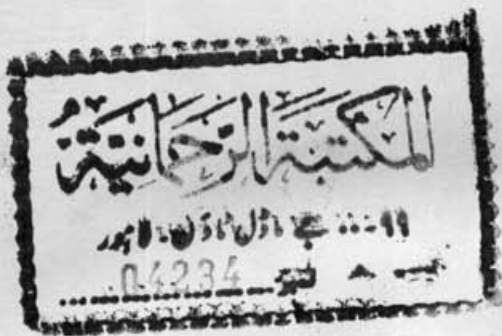 المكتبة الرحمانية
۹۹... جے ماڈل ٹاؤن. لاہور
نمبر 04234